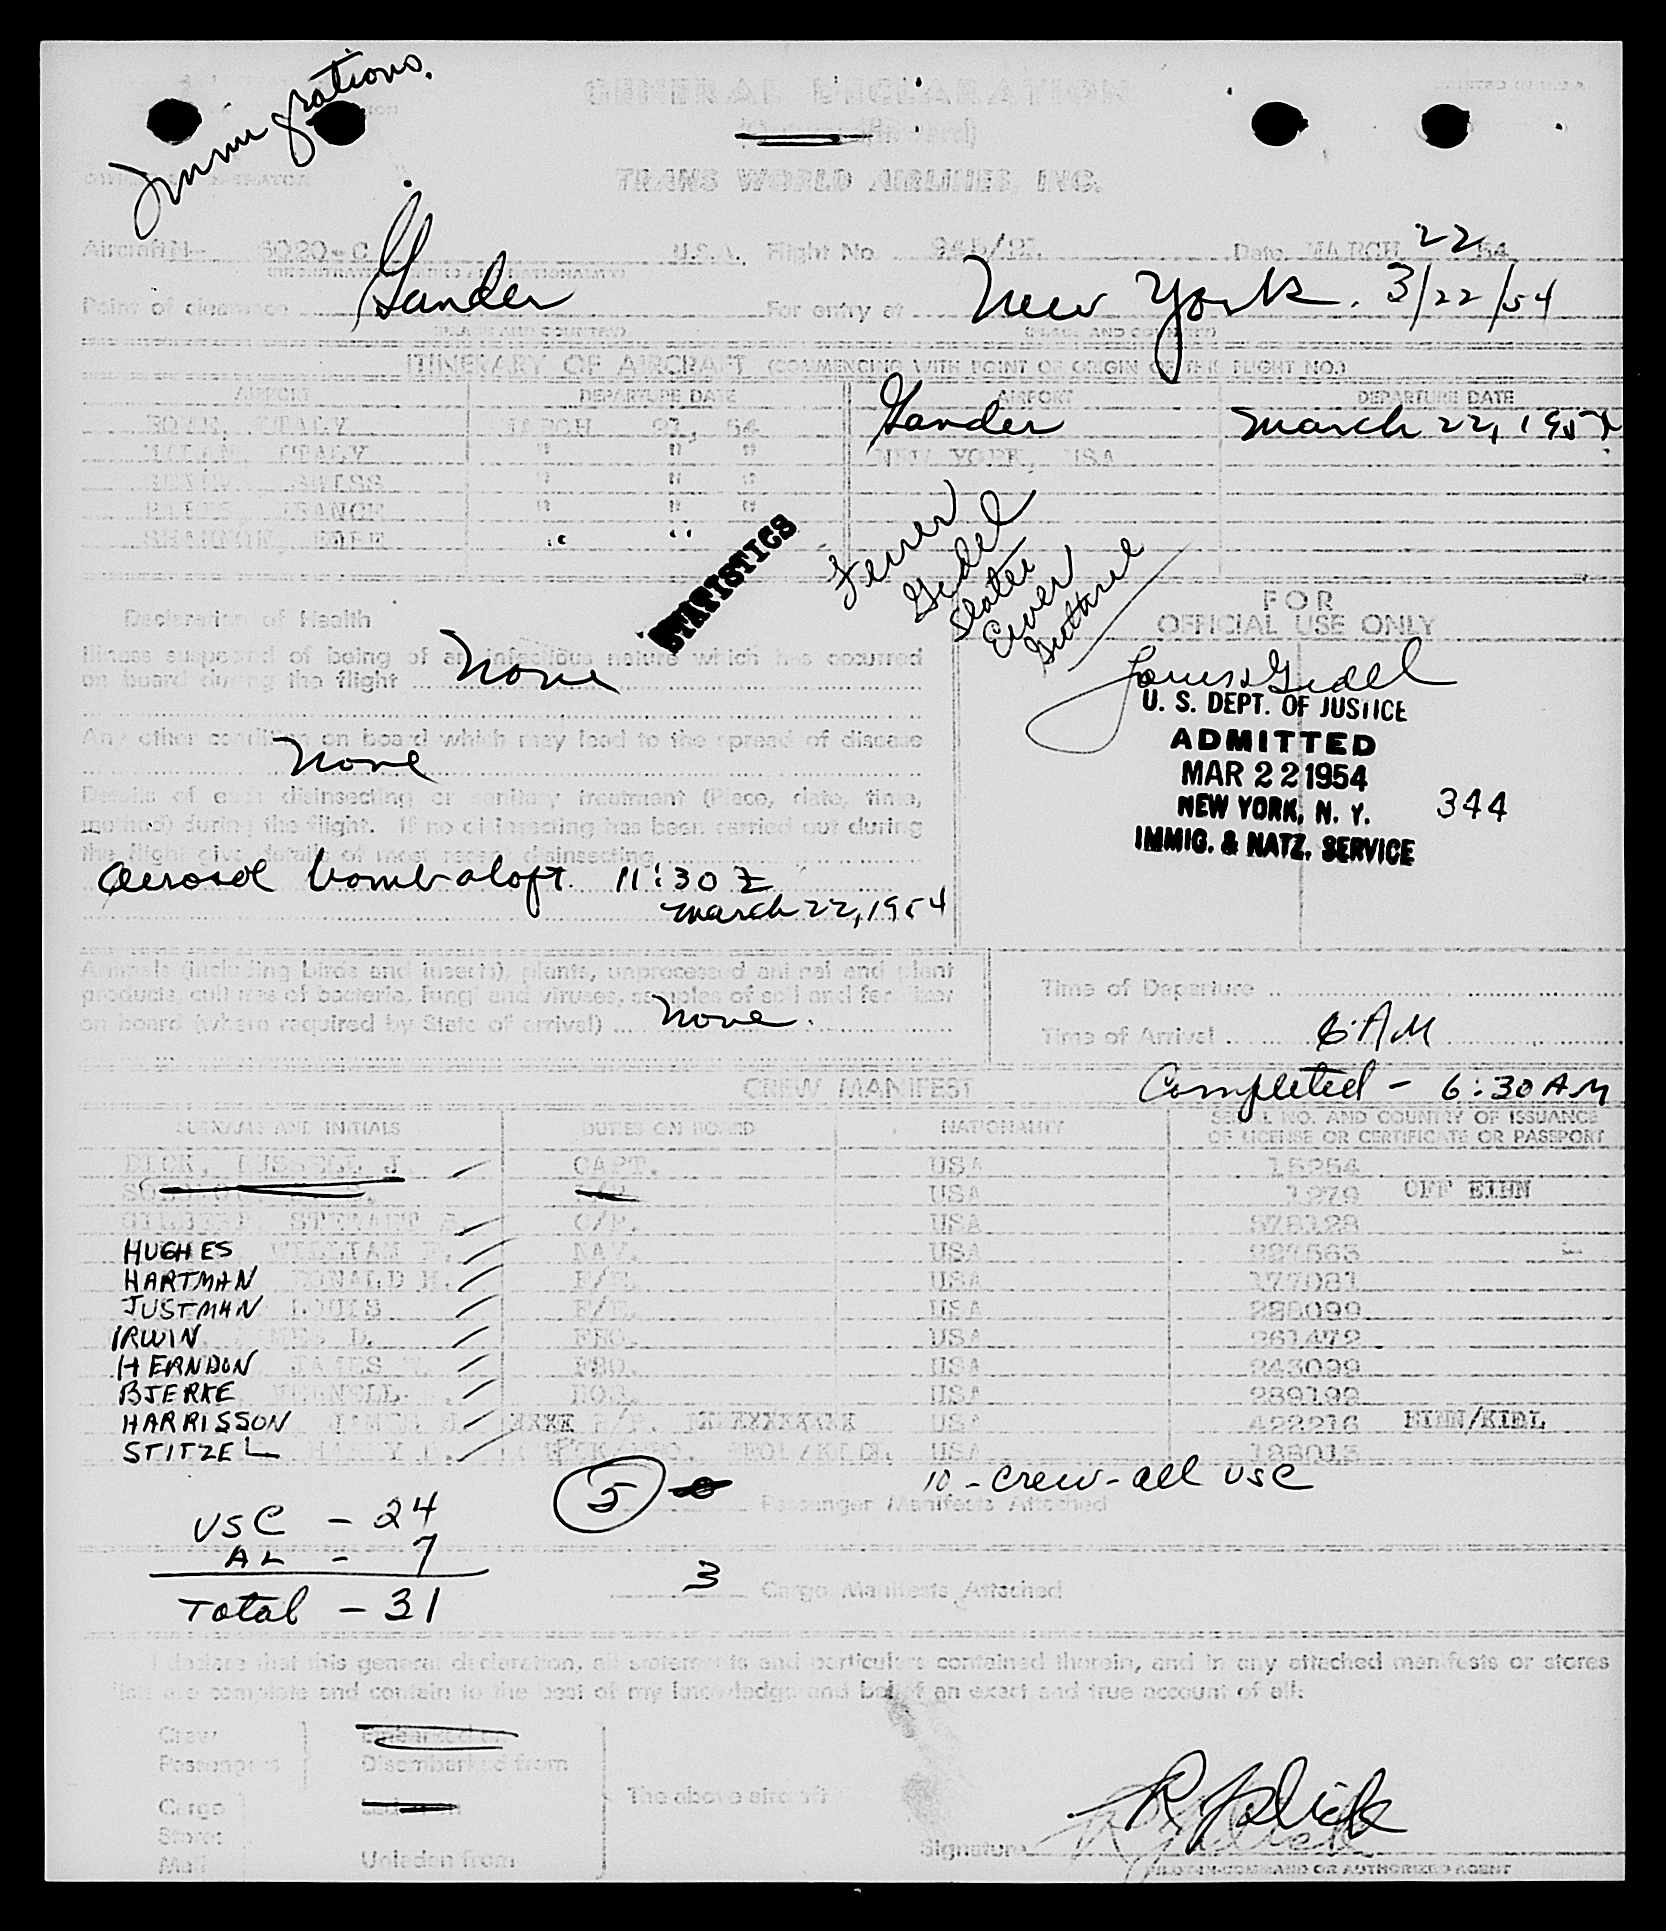 Immigrations.
GENERAL DECLARATION
(Outward/Inward)
TRANS WORLD AIRLINES, INC.
Aircraft N- 6020-C U.S.A. Flight No. Date MARCH 22 54
Point of clearance Gander For entry at New York. 3/22/54
(PLACE AND COUNTRY) (PLACE AND COUNTRY)
ITINERARY OF AIRCRAFT (COMMENCING WITH POINT OF ORIGIN OF THIS FLIGHT NO.)
AIRPORT DEPARTURE DATE AIRPORT DEPARTURE DATE
ITALY MARCH 21, 54 Gander March 22, 1954
ITALY " " " NEW YORK, USA
SWISS " " "
PARIS FRANCE " " "
SHANNON, EIRE " "
STATISTICS
Ferrer
Gidel
Slatter
Ewer
Guthrie
Declaration of Health
FOR
OFFICIAL USE ONLY
Illness suspected of being of an infectious nature which has occurred
on board during the flight None
Any other condition on board which may lead to the spread of disease
None
Details of each disinsecting or sanitary treatment (Place, date, time,
method) during the flight. If no disinsecting has been carried out during
the flight give details of most recent disinsecting
Aerosol bomb aloft 11:30 Z
March 22, 1954
Louis Gidel
U. S. DEPT. OF JUSTICE
ADMITTED
MAR 22 1954
NEW YORK, N. Y. 344
IMMIG. & NATZ. SERVICE
Animals (including birds and insects), plants, unprocessed animal and plant
products, cultures of bacteria, fungi and viruses, samples of soil and fertilizer
on board (where required by State of arrival) None.
Time of Departure
Time of Arrival 6 AM
Completed - 6:30 AM
CREW MANIFEST
SURNAME AND INITIALS DUTIES ON BOARD NATIONALITY SERIAL NO. AND COUNTRY OF ISSUANCE
OF LICENSE OR CERTIFICATE OR PASSPORT
DICK, RUSSELL J. CAPT. USA 15254
USA 1279 OFF EINN
GILBERT, STEWART USA
HUGHES WILLIAM NAV. USA
HARTMAN RONALD H. USA 177081
JUSTMAN LOUIS USA
IRWIN USA 261472
HERNDON JAMES USA 243099
BJERKE USA 289199
HARRISSON USA 422216 EINN/KIDL
STITZEL USA
10 - Crew - all USC
USC - 24
AL - 7
Total - 31
5 Passenger Manifests Attached
3 Cargo Manifests Attached
I declare that this general declaration, all statements and particulars contained therein, and in any attached manifests or stores
lists are complete and contain to the best of my knowledge and belief an exact and true account of all:
Crew
Passengers
Cargo
Stores
Mail
Embarked on
Disembarked from
Laden on
Unladen from
The above aircraft
Signature R J Dick
PILOT-IN-COMMAND OR AUTHORIZED AGENT